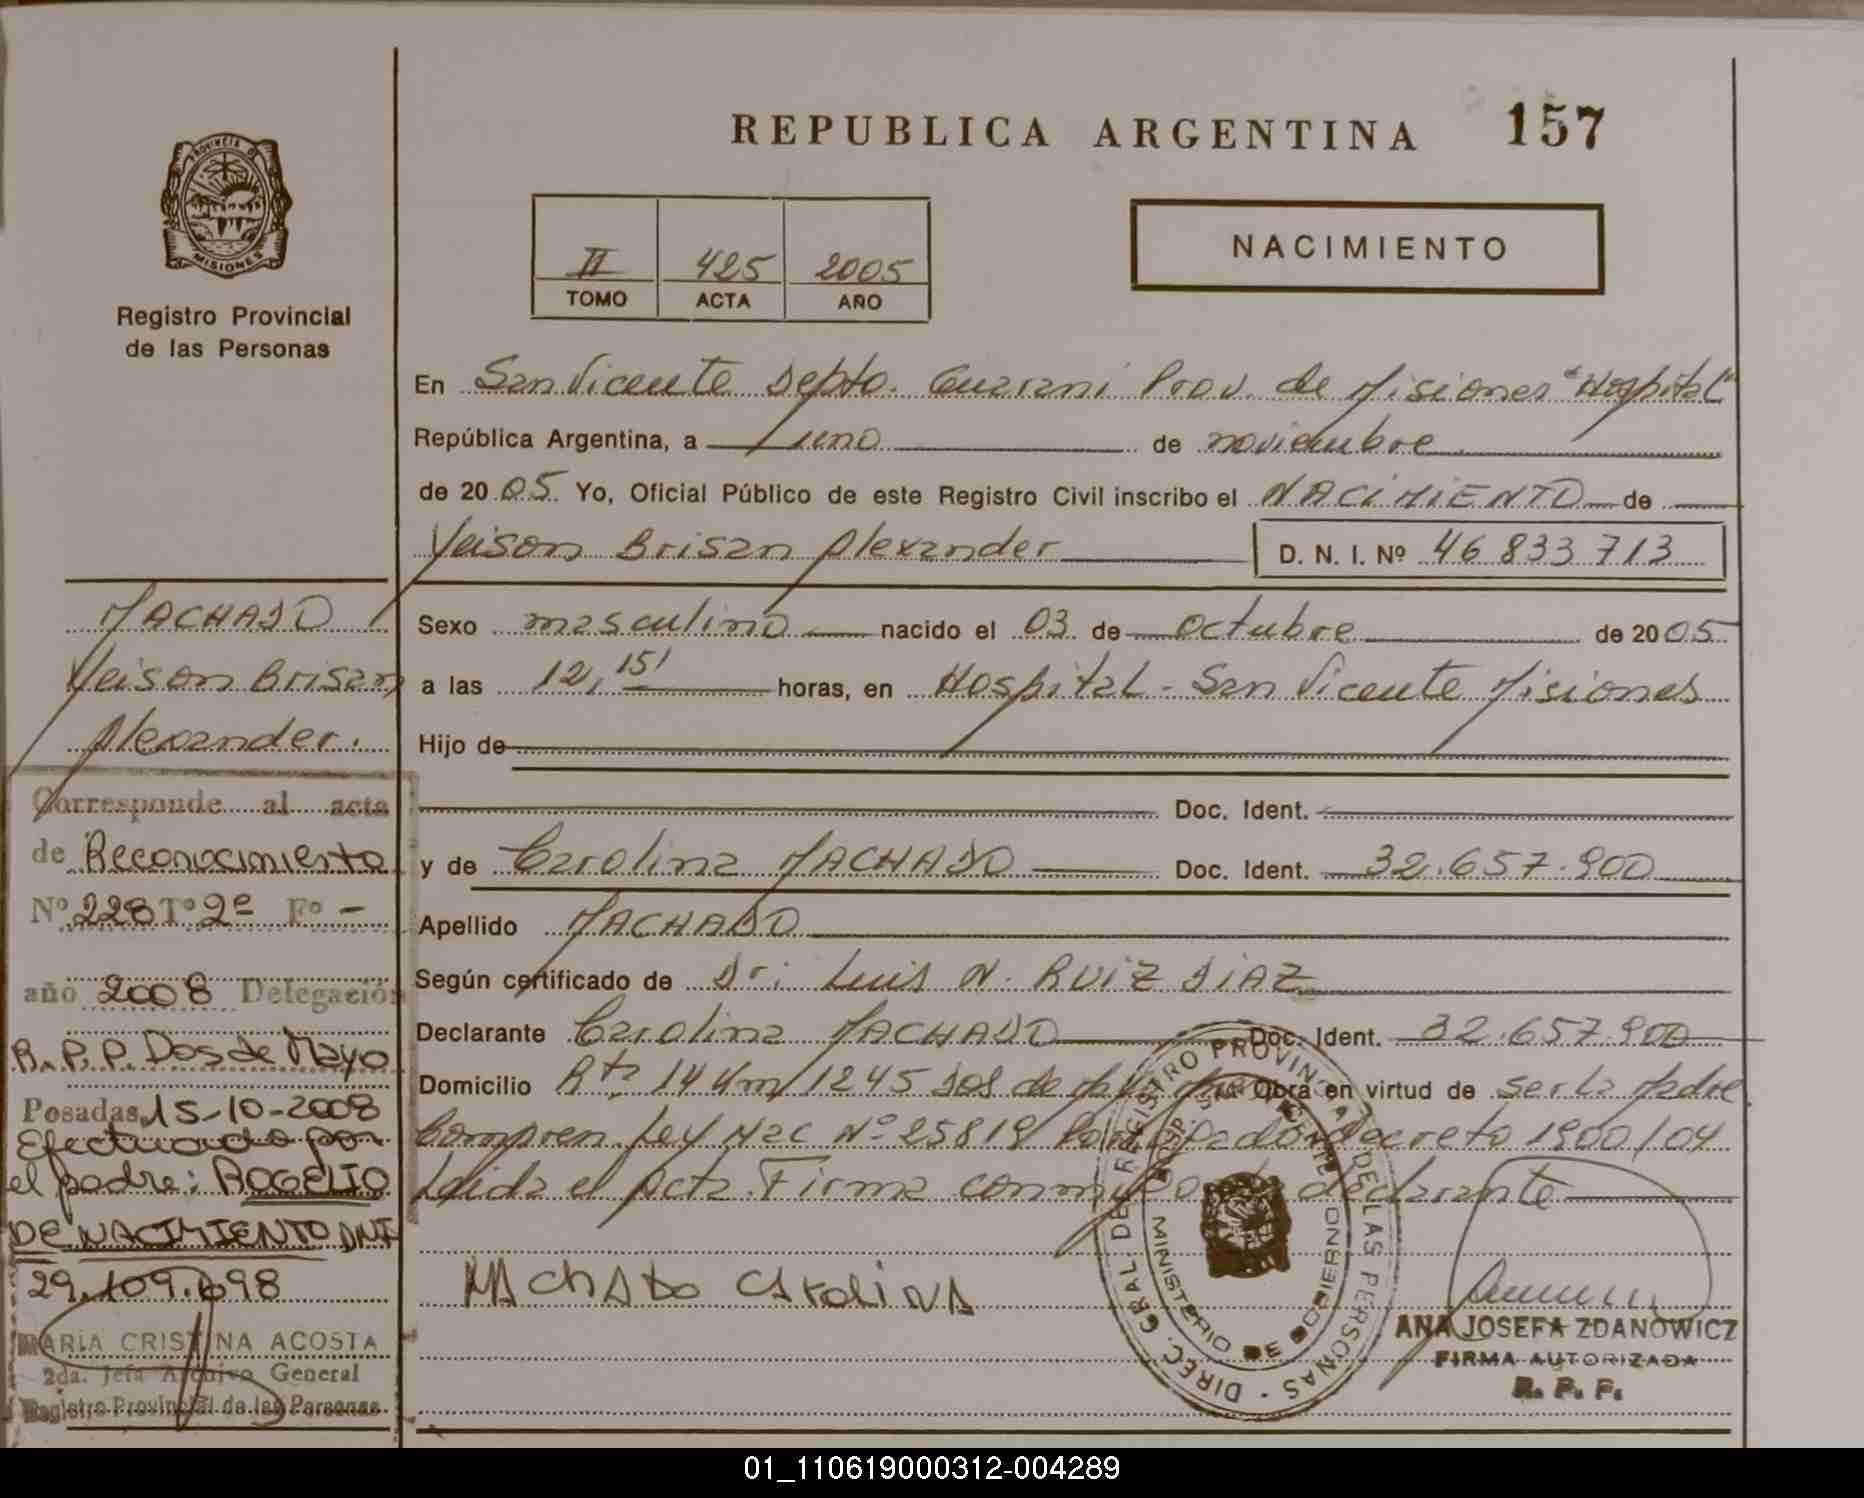 REPUBLICA ARGENTINA 157
PROVINCIA DE
MISIONES
Registro Provincial
de las Personas
II 425 2005
TOMO ACTA AÑO
NACIMIENTO
En San Vicente Depto. Guarani Prov. de Misiones "Hospital"
República Argentina, a uno de noviembre
de 2005 Yo, Oficial Público de este Registro Civil inscribo el NACIMIENTO de
Yeison Brisan Alexander D. N. I. Nº 46 833 713
MACHADO
Yeison Brisan
Alexander.
Sexo masculino nacido el 03 de octubre de 2005
a las 12,15' horas, en Hospital - San Vicente Misiones
Hijo de
Doc. Ident.
y de Carolina MACHADO Doc. Ident. 32.657.900
Apellido MACHADO
Según certificado de Dr: Luis N. RUIZ DIAZ
Declarante Carolina MACHADO Doc. Ident. 32.657.900
Domicilio Rta 14 Km 1245 Dos de Mayo Mnes Obra en virtud de ser la Madre
Compren. Ley Nac Nº 25819 Decreto 1900/04
Leida el Acta. Firma conmigo la declarante
MACHADO CAROLINA
Corresponde al acta
de Reconocimiento
Nº 228 Tº 2º Fº -
año 2008 Delegación
R.P.P. Dos de Mayo
Posadas, 15-10-2008
Efectuado por
el padre: ROGELIO
DE NACIMIENTO DNI
29.109.698
MARIA CRISTINA ACOSTA
2da. Jefa Archivo General
Registro Provincial de las Personas
DIREC. GRAL. DE REGISTRO PROVINCIAL DE LAS PERSONAS
HOSP. SAN VICENTE
MINISTERIO DE GOBIERNO
ANA JOSEFA ZDANOWICZ
FIRMA AUTORIZADA
R. P. P.
01_110619000312-004289